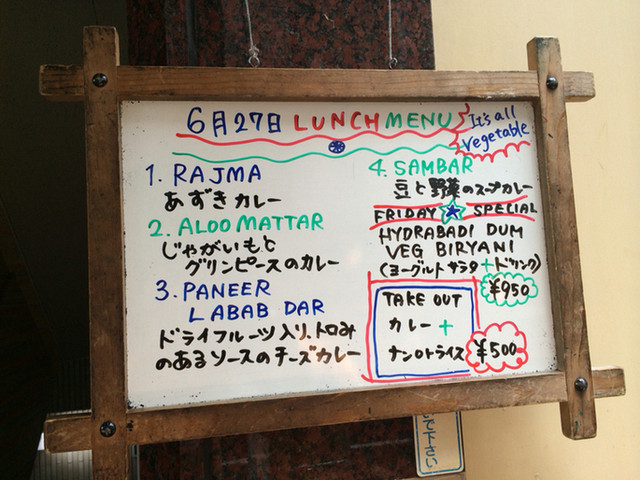 6月27日 LUNCH MENU
It's all
vegetable
1. RAJMA
あずきカレー
2. ALOO MATTAR
じゃがいもと
グリンピースのカレー
3. PANEER
LABAB DAR
ドライフルーツ入り、トロみ
のあるソースのチーズカレー
4. SAMBAR
豆と野菜のスープカレー
FRIDAY ★ SPECIAL
HYDRABADI DUM
VEG BIRYANI
(ヨーグルト サラタ + ドリンク)
¥950
TAKE OUT
カレー +
ナンorライス
¥500